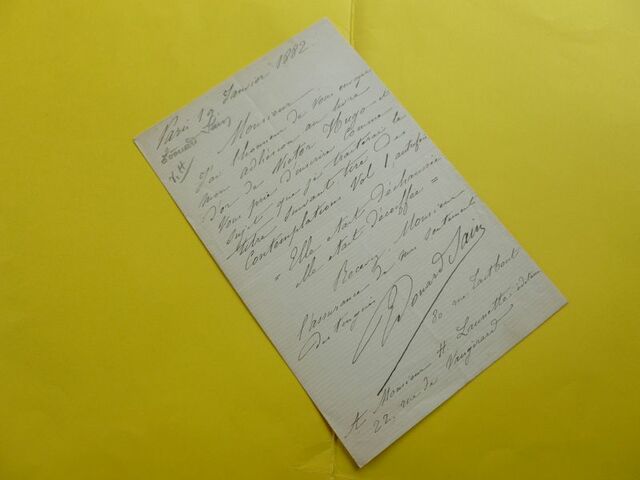 Paris 12 Janvier 1882
Edouard Sain
V. H
Monsieur
J'ai l'honneur de vous envoyer
mon adhésion au livre
d'or de Victor Hugo et
vous prie d'inscrire comme
sujet que je traiterai le
titre suivant tiré des
Contemplations Vol 1 autrefois
= Elle était déchaussée
elle était décoiffée =
Recevez Monsieur
l'assurance de mes sentiments
distingués
Edouard Sain
80 rue Taitbout
A Monsieur H Launette éditeur
22, rue de Vaugirard